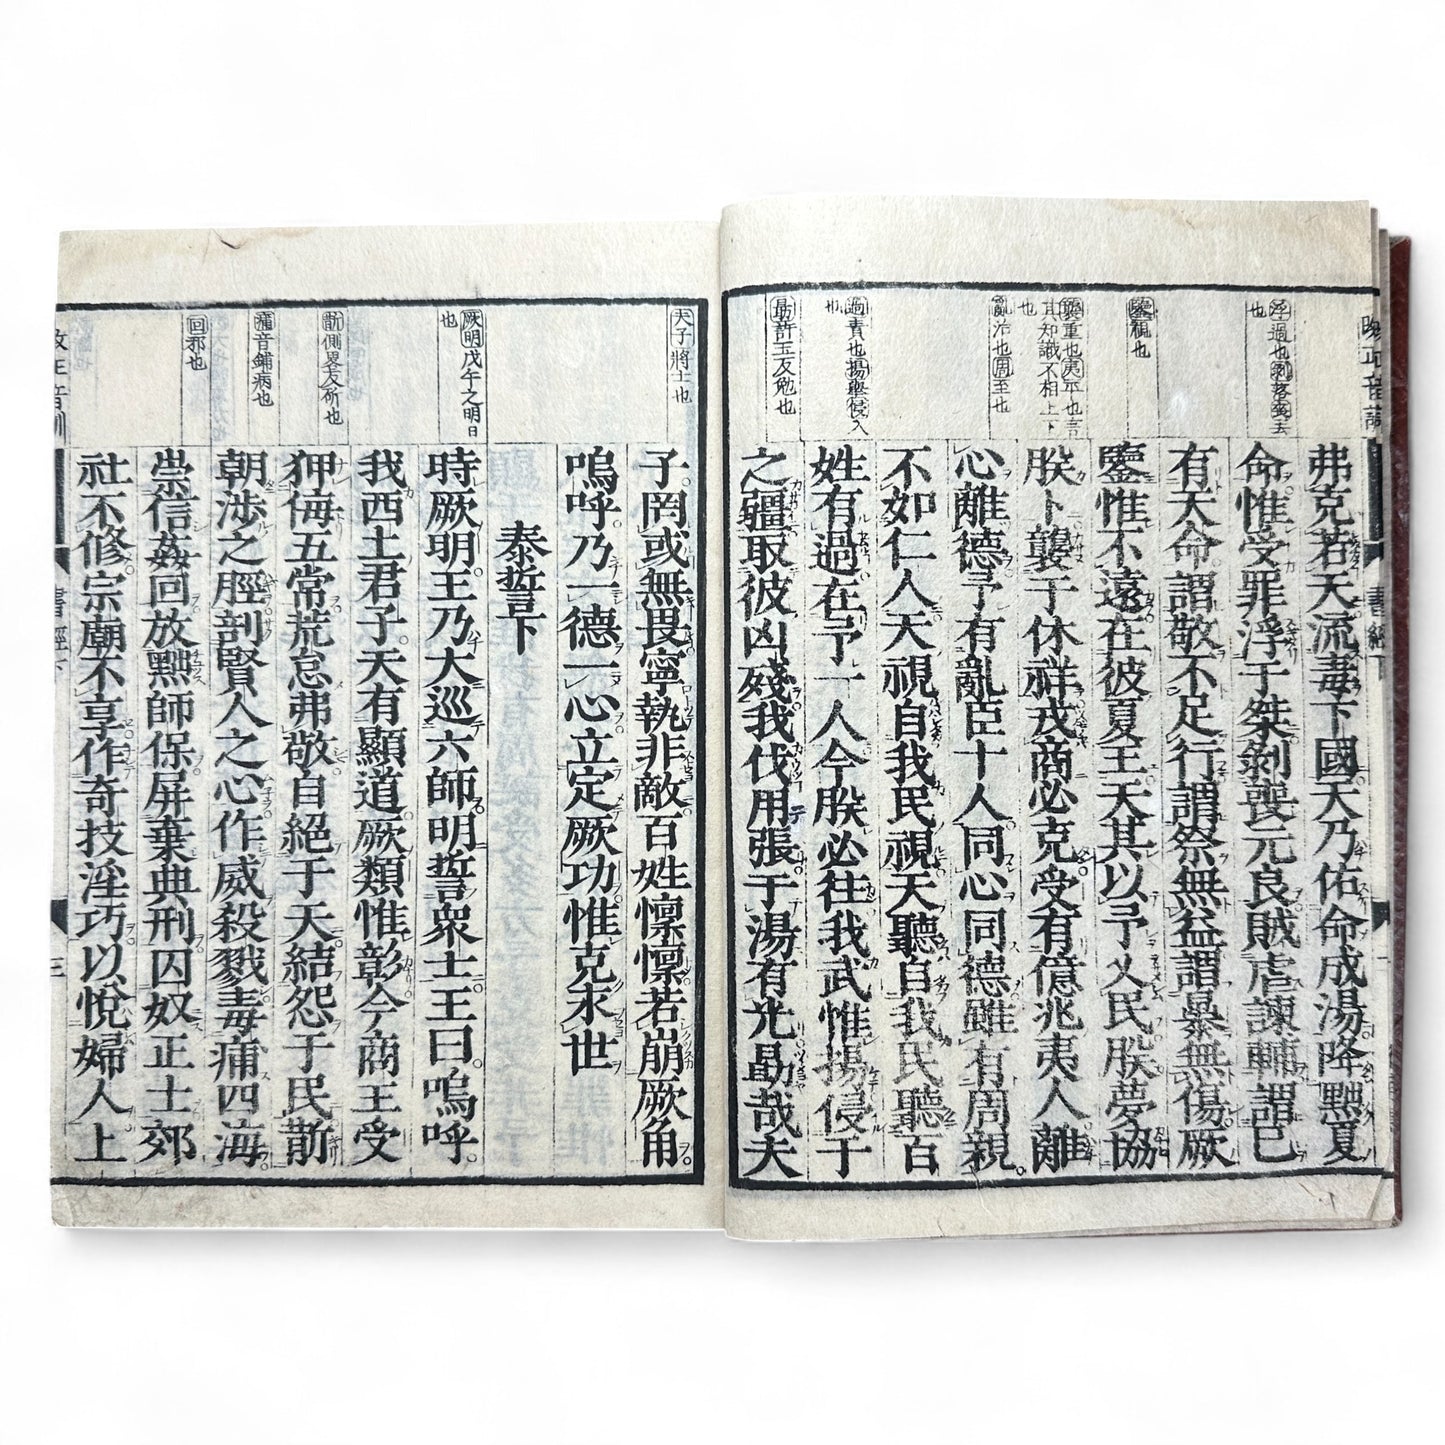 弗克若天流毒下國天乃佑命成湯降黜夏
命惟受罪浮于桀剝喪元良賊虐諫輔謂已
有天命謂敬不足行謂祭無益謂暴無傷厥
鑒惟不遠在彼夏王天其以予乂民朕夢協
朕卜襲于休祥戎商必克受有億兆夷人離
心離德予有亂臣十人同心同德雖有周親
不如仁人天視自我民視天聽自我民聽百
姓有過在予一人今朕必往我武惟揚侵于
之疆取彼凶殘我伐用張于湯有光勗哉夫
子罔或無畏寧執非敵百姓懍懍若崩厥角
嗚呼乃一德一心立定厥功惟克永世
泰誓下
時厥明王乃大巡六師明誓衆士王曰嗚呼
我西土君子天有顯道厥類惟彰今商王受
狎侮五常荒怠弗敬自絕于天結怨于民斮
朝涉之脛剖賢人之心作威殺戮毒痡四海
崇信姦回放黜師保屏棄典刑囚奴正士郊
社不修宗廟不享作奇技淫巧以悅婦人上
浮過也剝落喪去
鑒視也
襲重也夷平也言
其知識不相上下
也
亂治也周至也
過責也揚舉侵入
也
勗許玉反勉也
夫子將士也
厥明戊午之明日
也
斮側畧反斫也
痡音鋪病也
回邪也
書經下
書經下
三